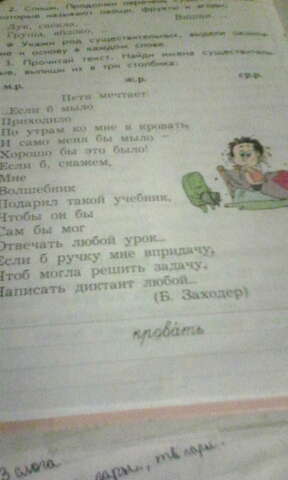 2. Спиши. Продолжи перечень
которые называют овощи, фрукты и ягоды.
Лук, свёкла, Вишня...
Груша, яблоко,
Укажи род существительных, выдели
и основу в каждом слове.
3. Прочитай текст. Найди имена существитель-
ные, выпиши их в три столбика:
м.р. ж.р. ср.р.
Петя мечтает
...Если б мыло
Приходило
По утрам ко мне в кровать
И само меня бы мыло –
Хорошо бы это было!
Если б, скажем,
Мне
Волшебник
Подарил такой учебник,
Чтобы он бы
Сам бы мог
Отвечать любой урок...
Если б ручку мне впридачу,
Чтоб могла решить задачу,
Написать диктант любой...
(Б. Заходер)
кровать
3 слога